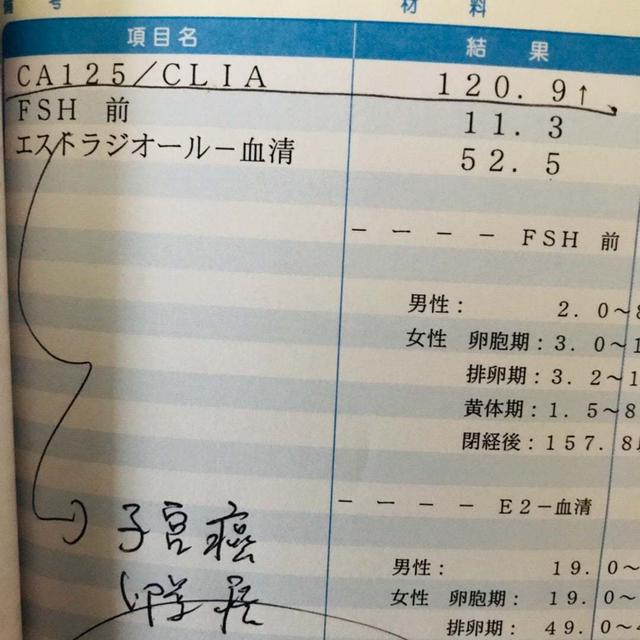 号 材 料
項目名 結 果
CA125/CLIA 120.9↑
FSH 前 11.3
エストラジオール−血清 52.5
−−−− FSH 前
男性: 2.0〜8
女性 卵胞期:3.0〜1
排卵期:3.2〜1
黄体期:1.5〜8
閉経後:157.8以
子宮癌
−−−− E2−血清
卵巣癌
男性: 19.0〜
女性 卵胞期: 19.0〜
排卵期: 49.0〜